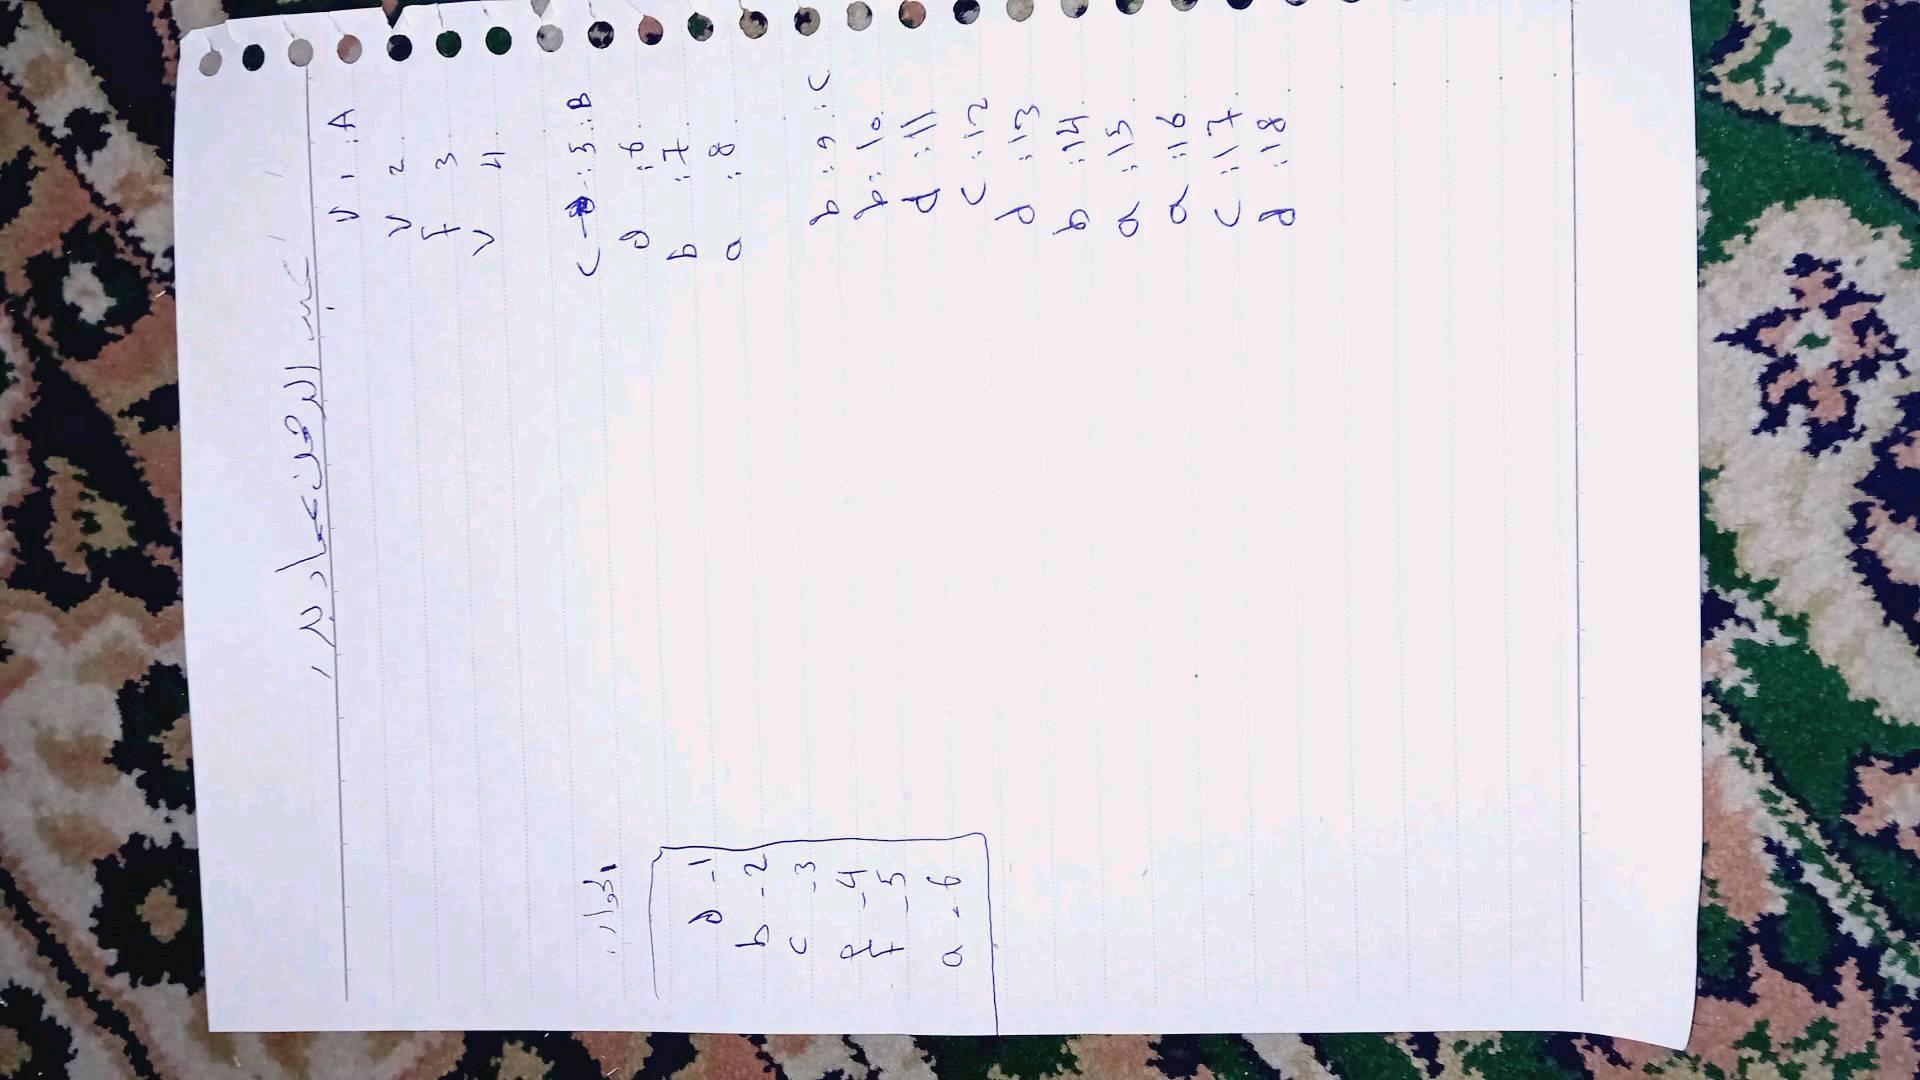 عبد الرحمن عماد بدر
A: 1 ✓
2 ✓
3 f
4 ✓
B: 5: c
6: d
7: b
8: a
C: 9: b
10: b
11: d
12: c
13: d
14: b
15: a
16: a
17: c
18: d
الحوار:
1- d
2- b
3- c
4- e
5- f
6- a